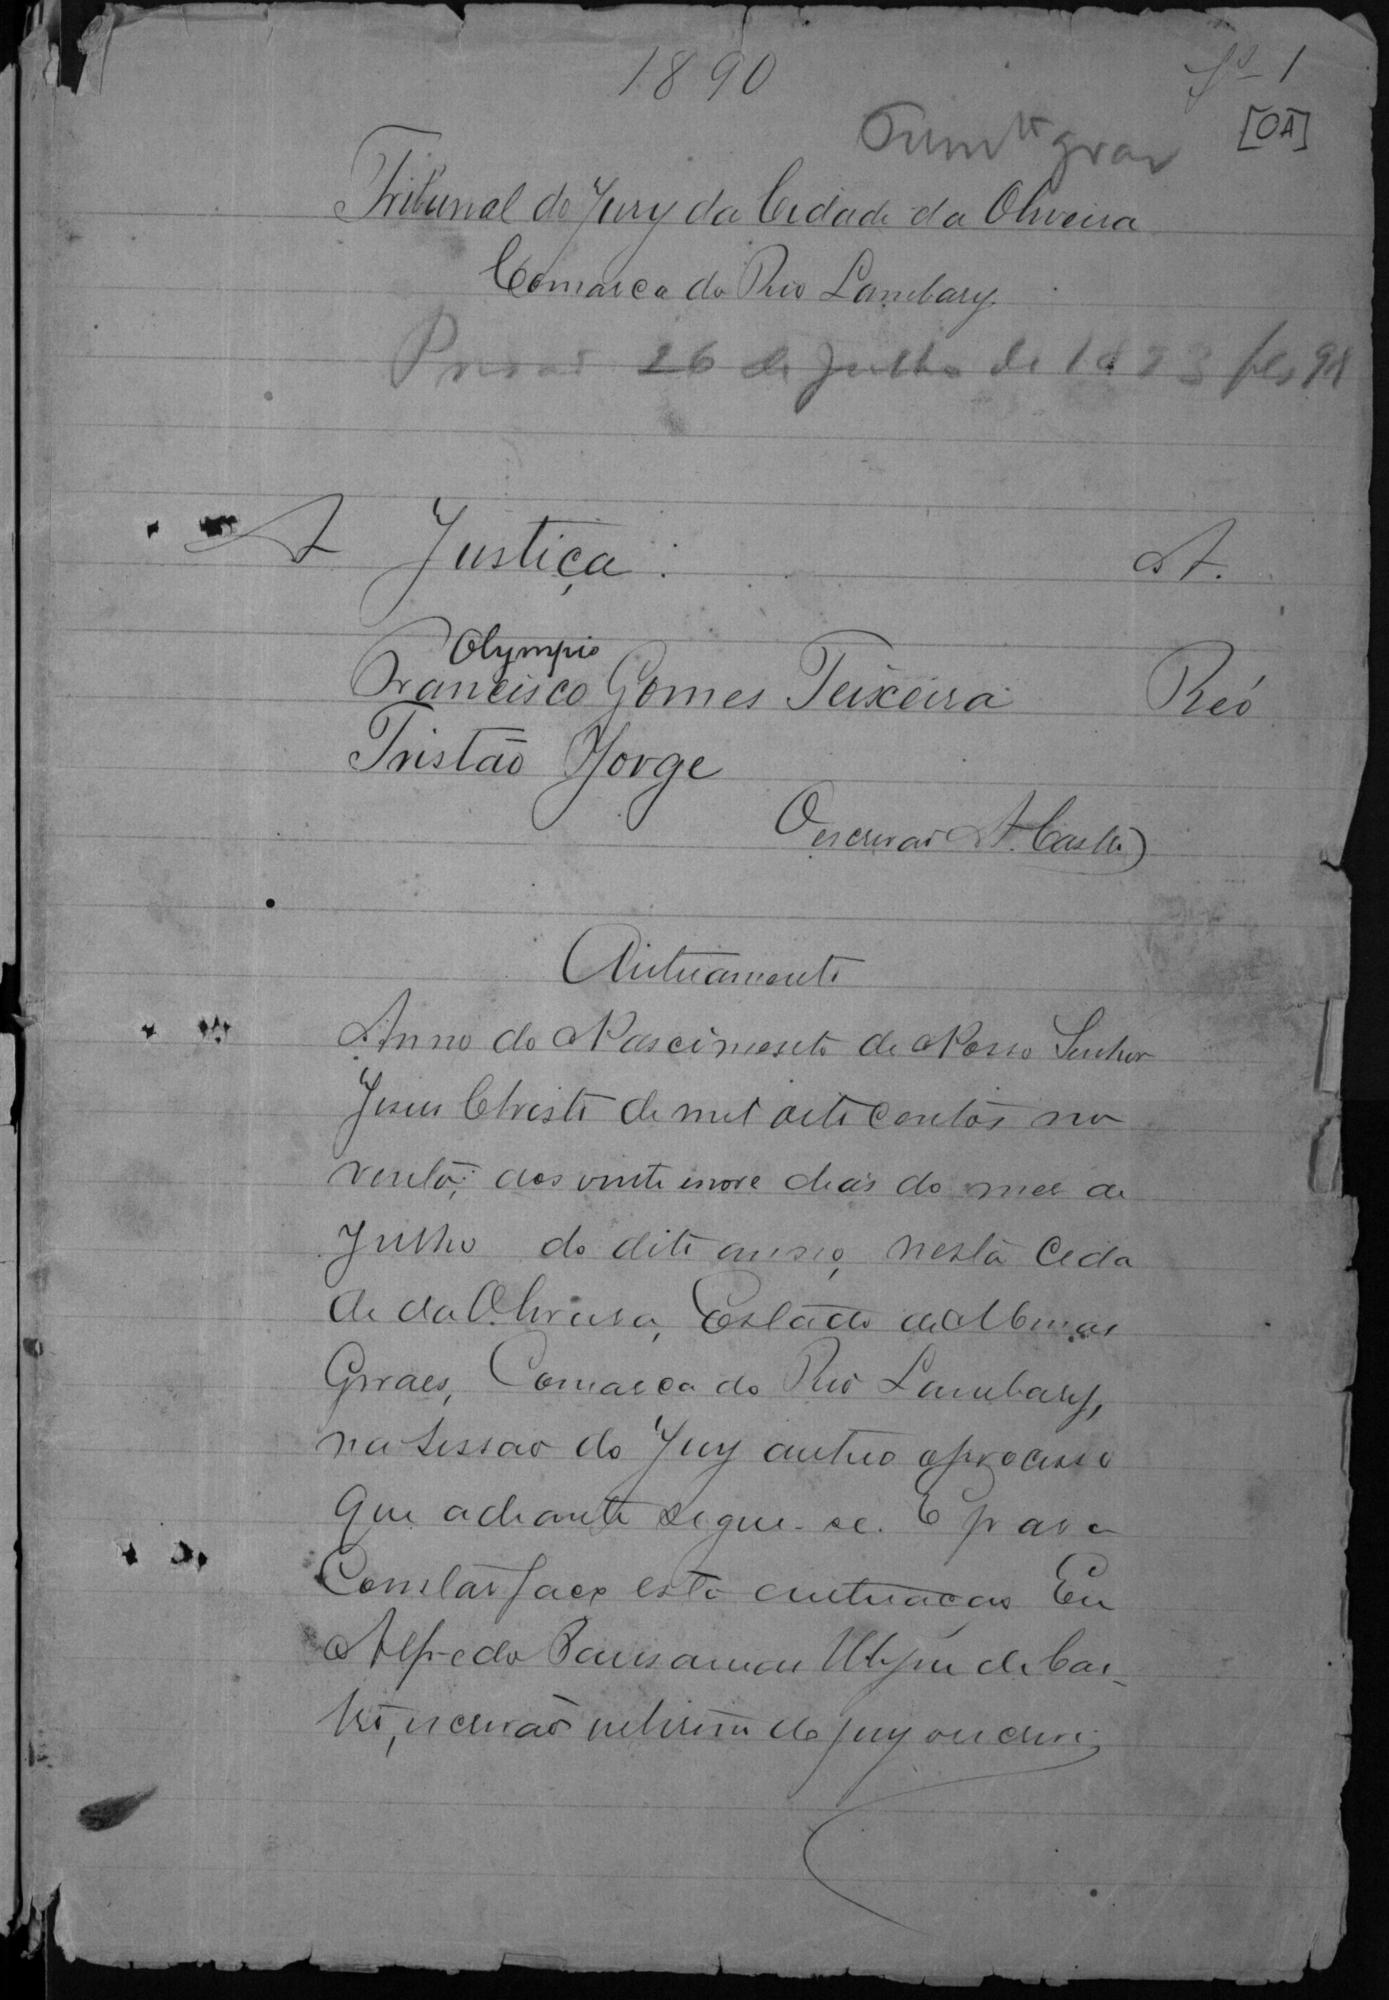 1890
fs 1
[OA]
grav
Tribunal do Jury da Cidade da Oliveira
Comarca do Rio Lambary
26 de Julho de 1893 fls 98
A Justiça. A.
Olympio
Francisco Gomes Teixeira Reó
Tristão Jorge
O escrivão A. Castro
Autuamento
Anno do Nascimento de Nosso Senhor
Jesus Christo de mil oito centos no
venta, aos vinte e nove dias do mez de
Julho do dito anno, nesta Cida
de da Oliveira, Estado de Minas
Geraes, Comarca do Rio Lambary,
na sessão do Jury autuo o processo
que adiante segue-se. E para
Constar faço esta autuação Eu
Alfredo de Cas-
tro, escrivão interino do jury o escrevi